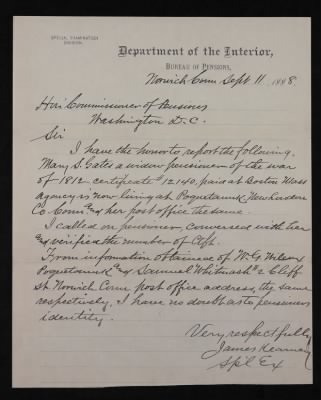 SPECIAL EXAMINATION
DIVISION.
Department of the Interior,
BUREAU OF PENSIONS,
Norwich Conn Sept 11, 1888.
Hon Commissioner of Pensions
Washington D.C.
Sir
I have the honor to report the following.
Mary S. Gates a widow pensioner of the war
of 1812, certificate # 12140, paid at Boston Mass
Agency is now living at Poquetanuck New London
Co Conn and her post office the same.
I called on pensioner, conversed with her
and verified the number of Ctft.
From information obtained of W. G.
Poquetanuck and Samuel Whitmash # 2 Cliff
St. Norwich Conn post office address, the same
respectively, I have no doubt as to pensioners
identity.
Very respectfully
James Kearney
Spl Ex